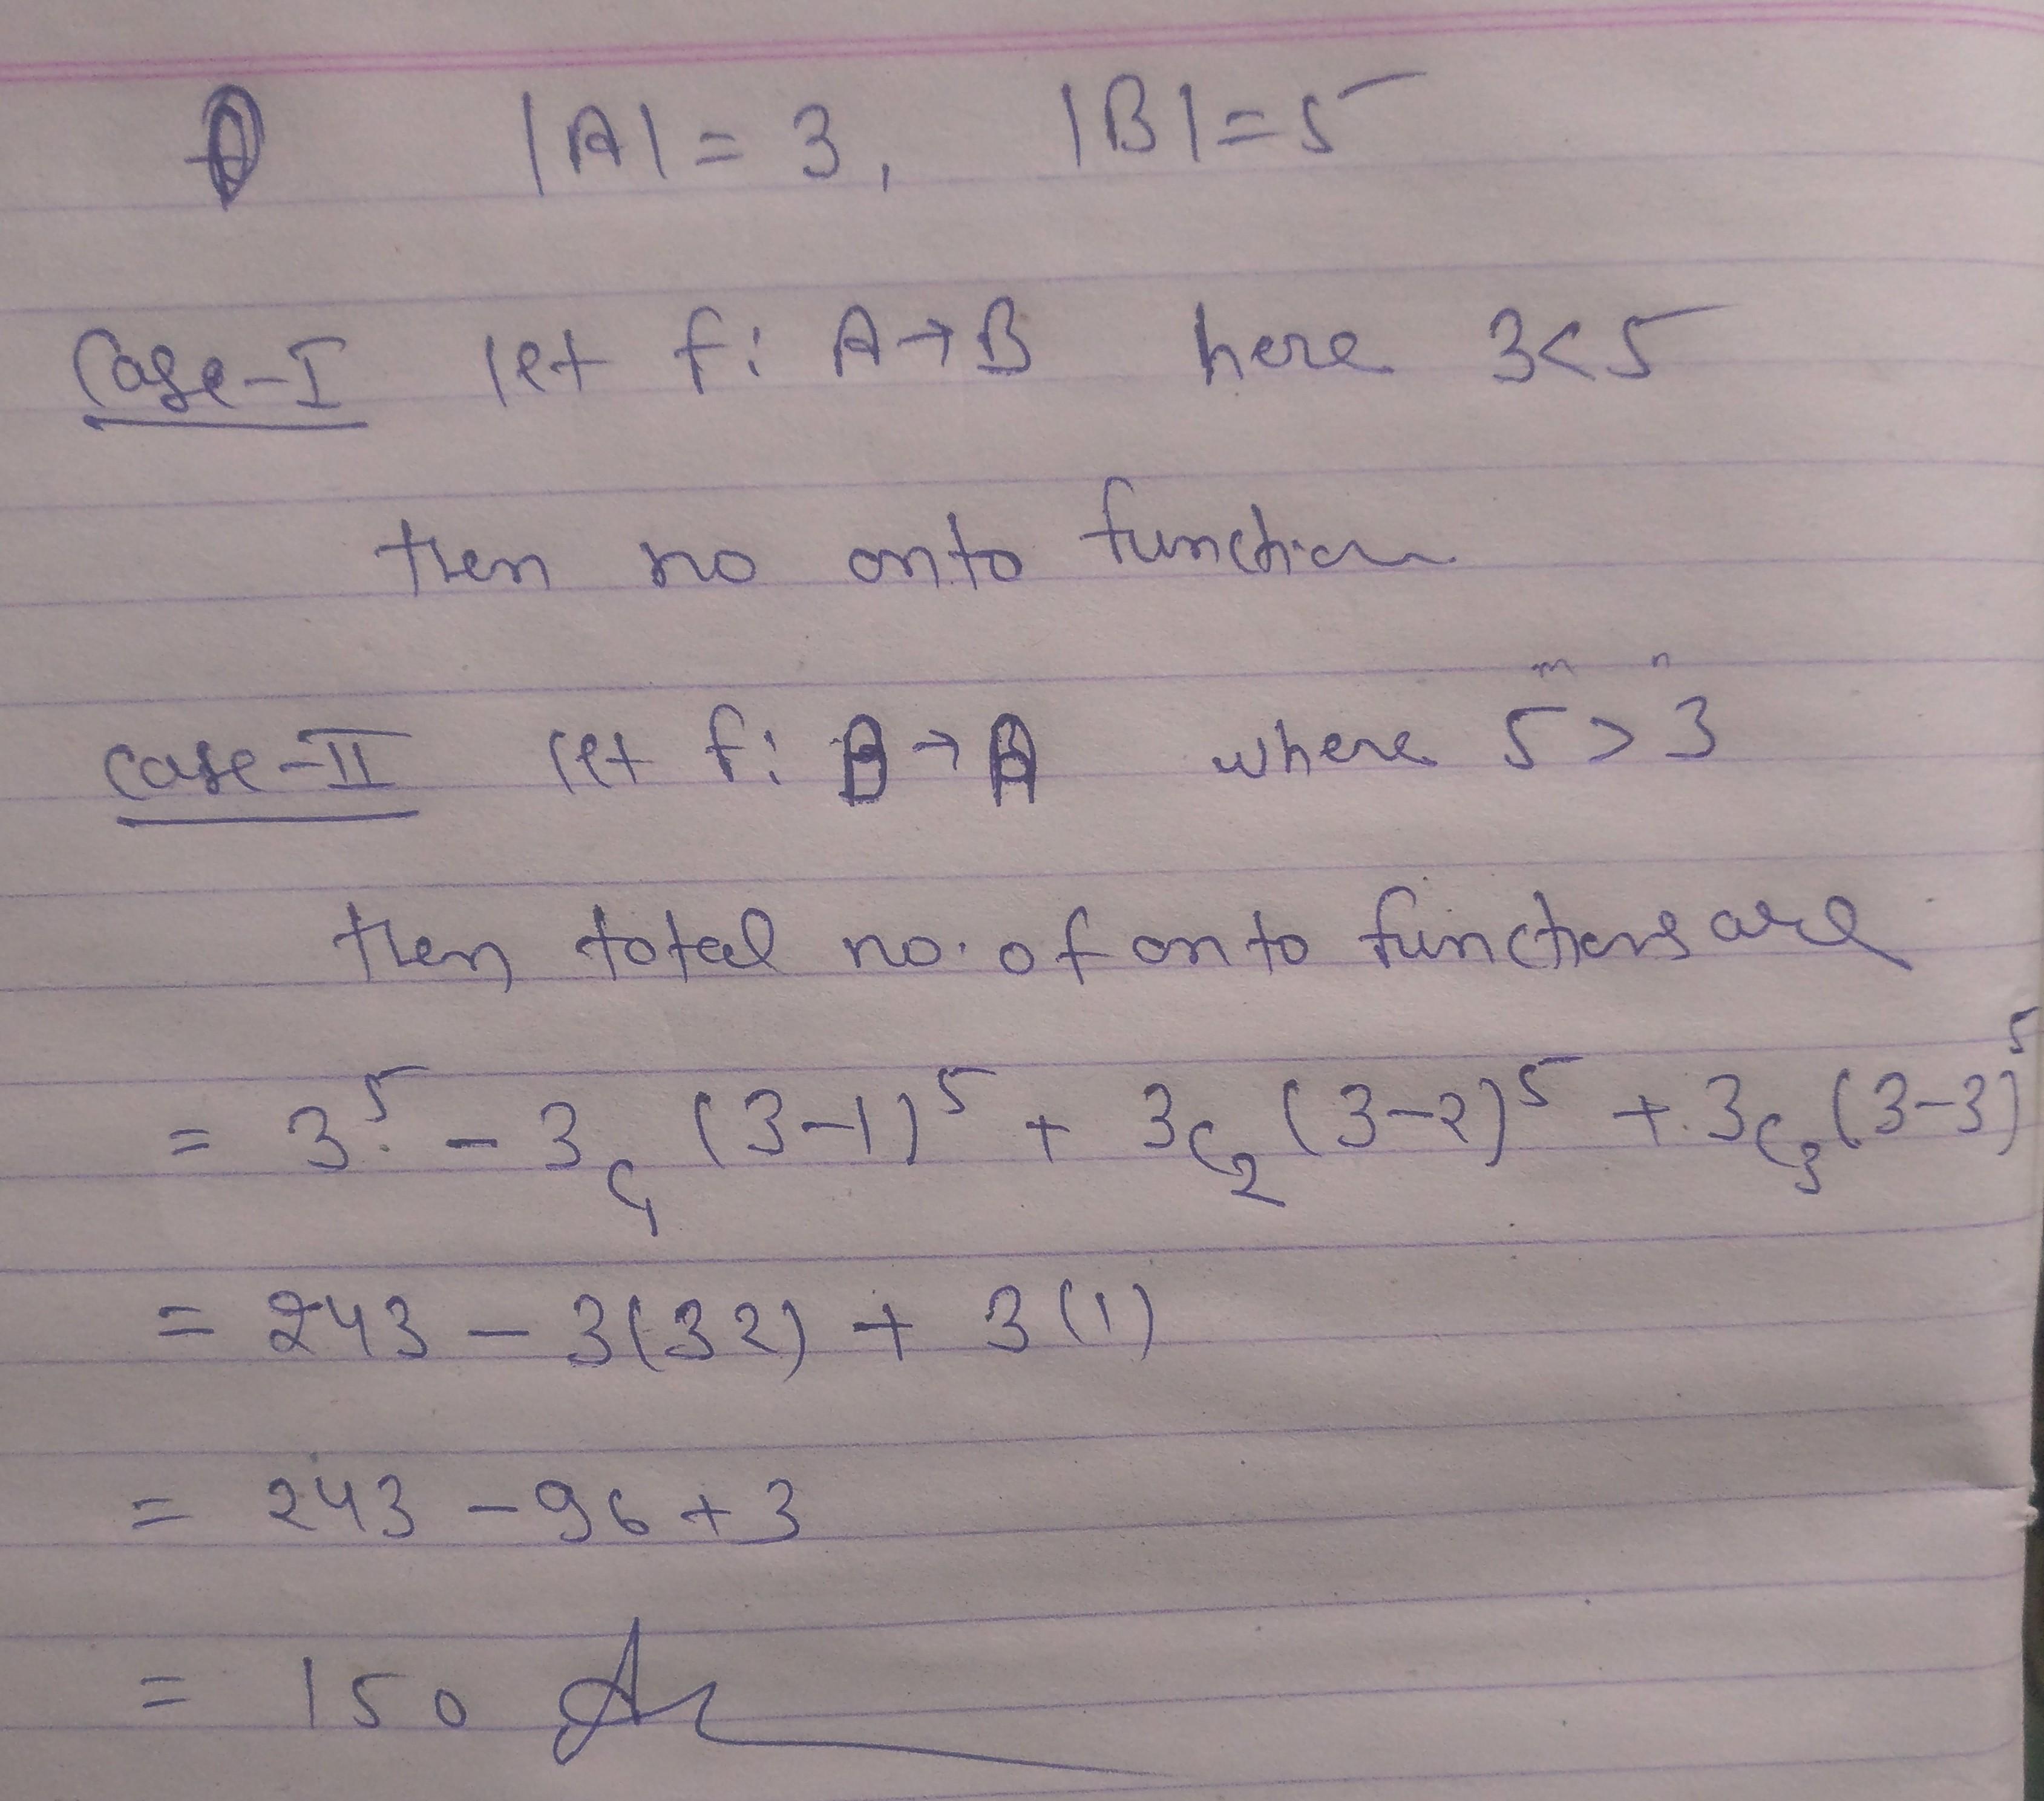 |A| = 3, |B| = 5
Case-I let f: A→B here 3<5
then no onto function
m n
case-II let f: B→A where 5>3
then total no. of onto functions are
= 3⁵ - 3C₁ (3-1)⁵ + 3C₂ (3-2)⁵ + 3C₃ (3-3)⁵
= 243 - 3(32) + 3(1)
= 243 - 96 + 3
= 150